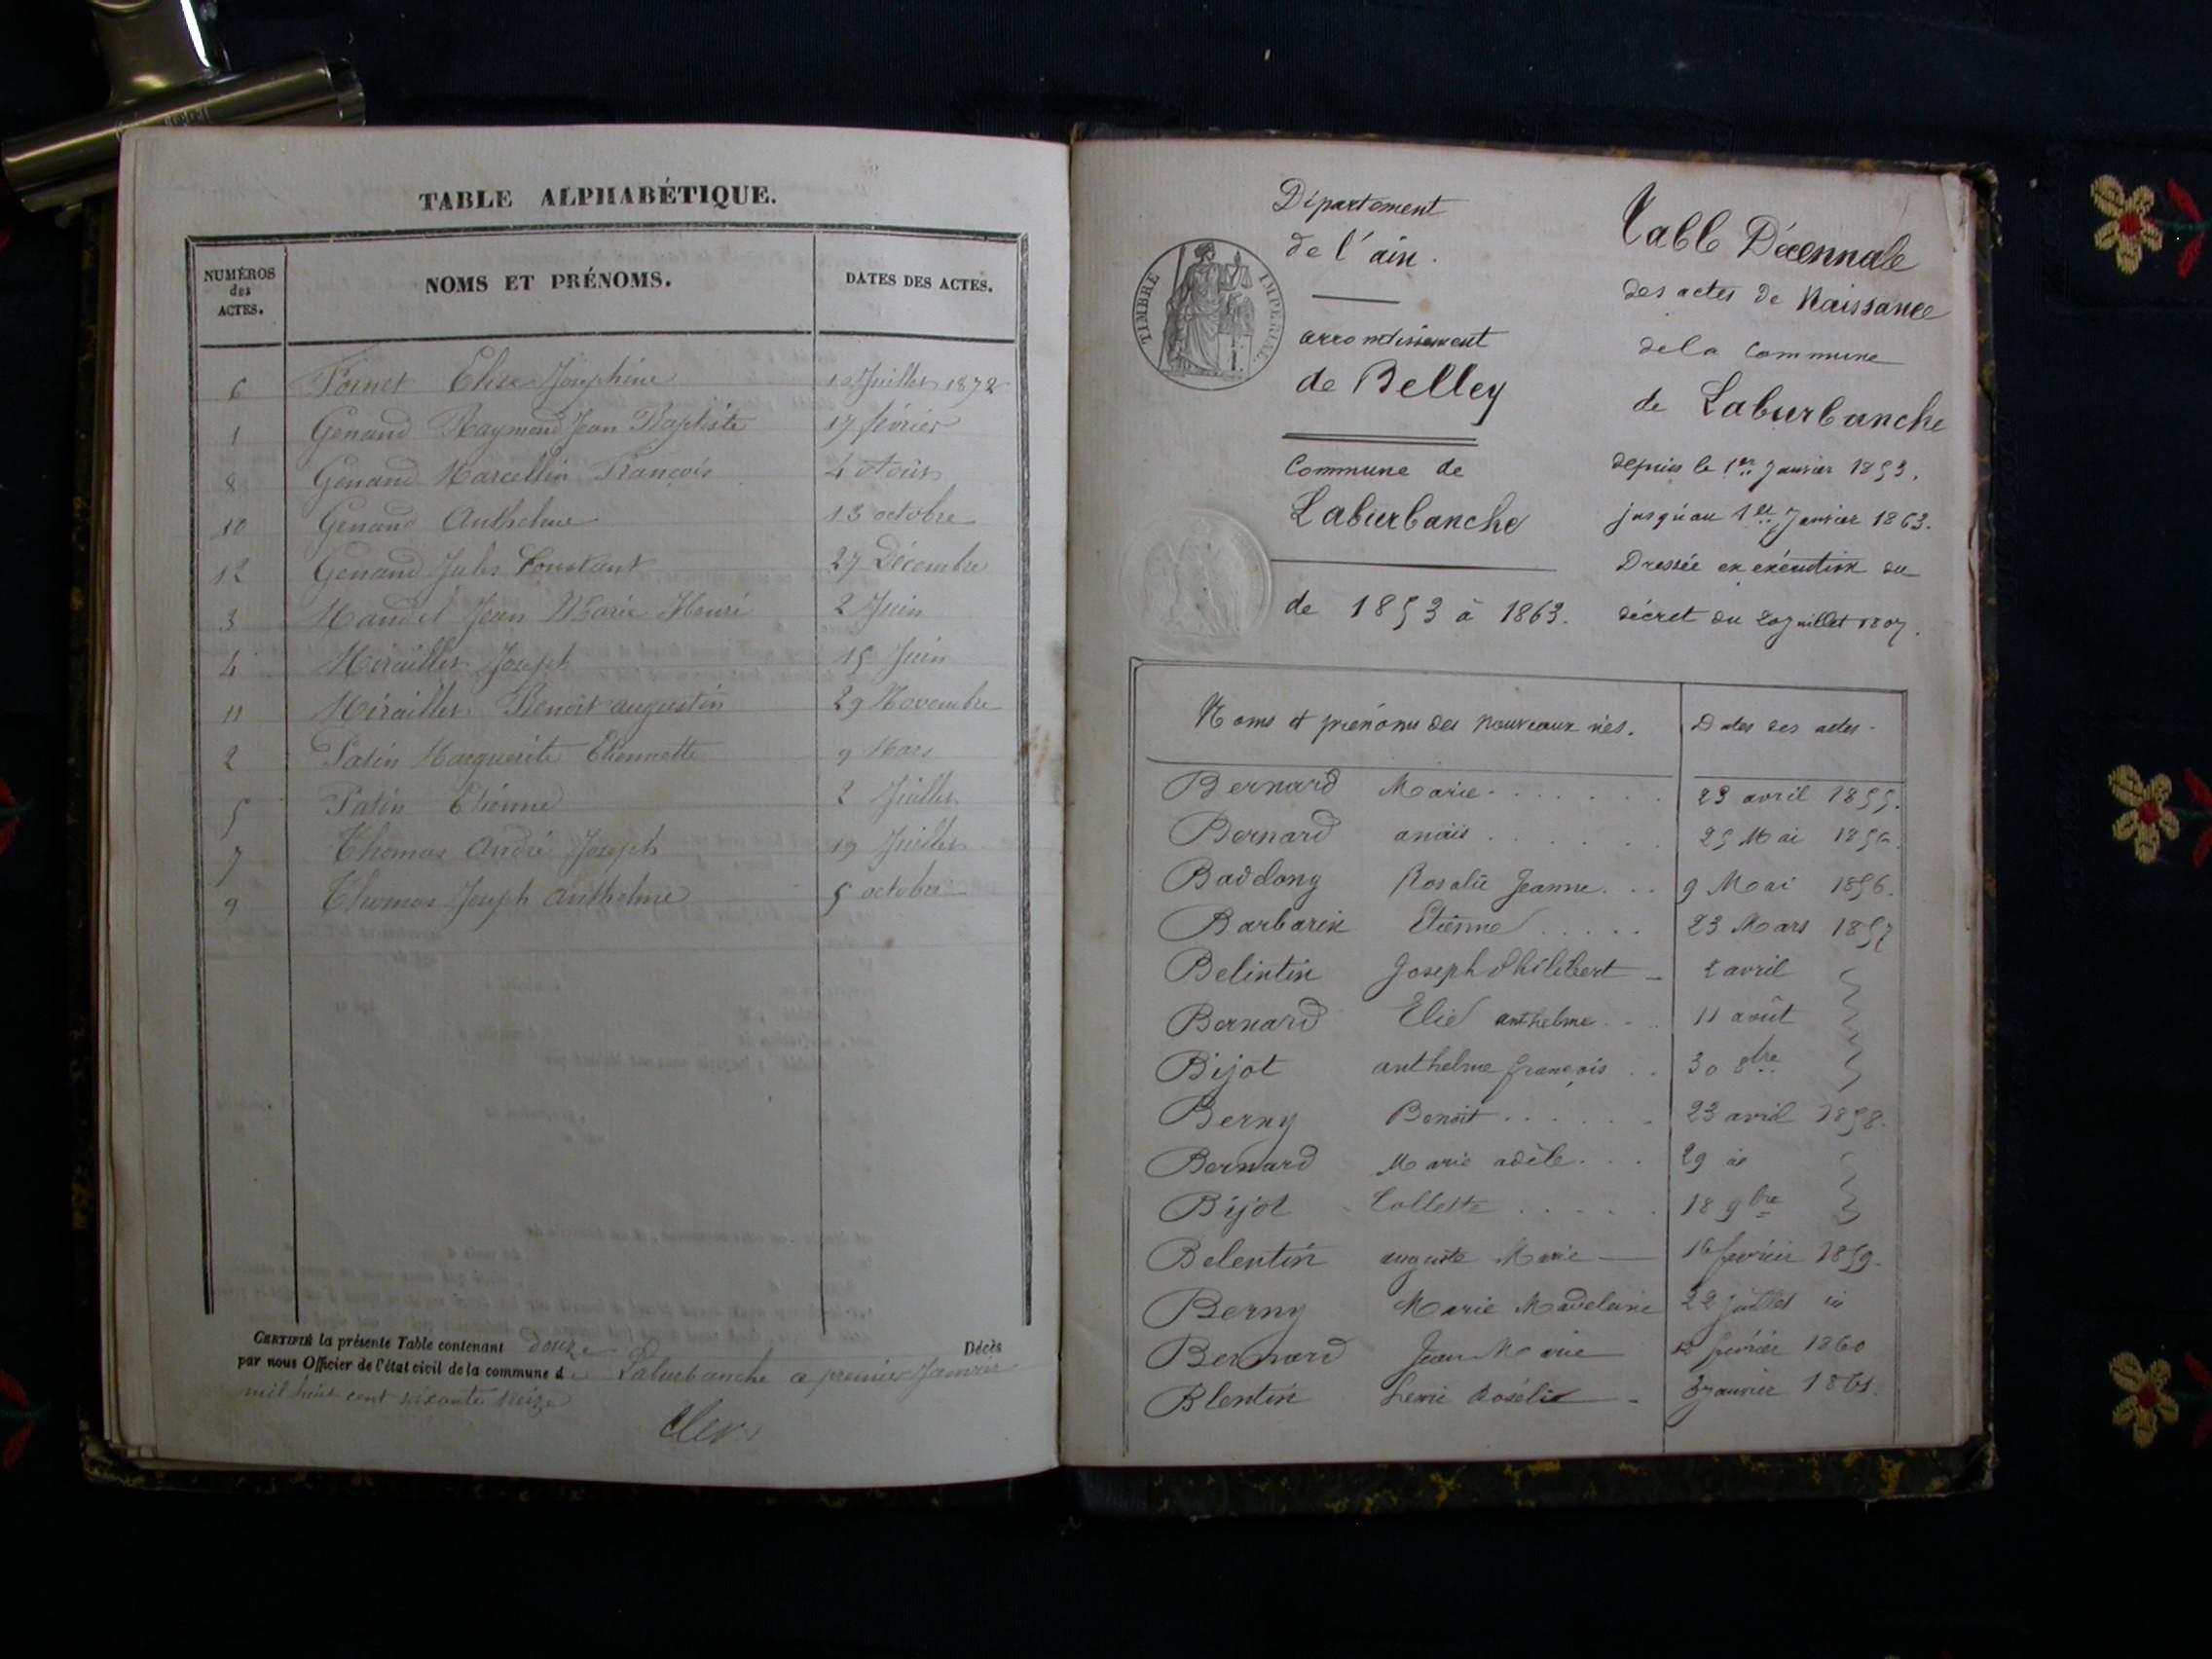 TABLE ALPHABÉTIQUE.
NUMÉROS
des
ACTES.
NOMS ET PRÉNOMS.
DATES DES ACTES.
6 Elise Joséphine 10 Juillet 1872
1 Genand Raymond Jean Baptiste 17 février
8 Genand Marcellin François 4 Août
10 Genand Anthelme 13 octobre
12 Genand Jules Constant 27 Décembre
3 Jean Marie Henri 2 Juin
4 Miraillet Joseph 15 Juin
11 Miraillet Benoit augustin 29 Novembre
2 Patin Marguerite Etiennette 9 Mars
5 Patin Etienne 2 Juillet
7 Thomas André Joseph 19 Juillet
9 Thomas Joseph anthelme 5 octobre
CERTIFIÉ la présente Table contenant douze Décès
par nous Officier de l'état civil de la commune de Laburbanche premier Janvier
mil huit cent soixante treize
Département
de l'ain.
TIMBRE IMPÉRIAL
arrondissement
de Belley
Commune de
Laburbanche
de 1853 à 1863.
Table Décennale
des actes de Naissance
de la Commune
de Laburbanche
depuis le 1er Janvier 1853.
jusqu'au 1er Janvier 1863.
Dressée en exécution du
décret du 20 juillet 1807.
Noms et prénoms des nouveaux nés. Dates des actes.
Bernard Marie 23 avril 1855.
Bernard anaïs 25 Mai
Rosalie Jeanne 9 Mai 1856.
Barbarin Etienne 23 Mars 1857
Belintin Joseph Philibert avril
Bernard Elie anthelme 11 août
Bijot anthelme françois 30 8bre
Berny Benoit 23 avril 1858.
Bernard Marie adèle 29 id
Bijot Collette 18 9bre
Belentin auguste Marie 16 février 1859.
Berny Marie Madeleine 22 juillet id
Bernard Jean Marie février 1860
Blentin Rosélie janvier 1861.